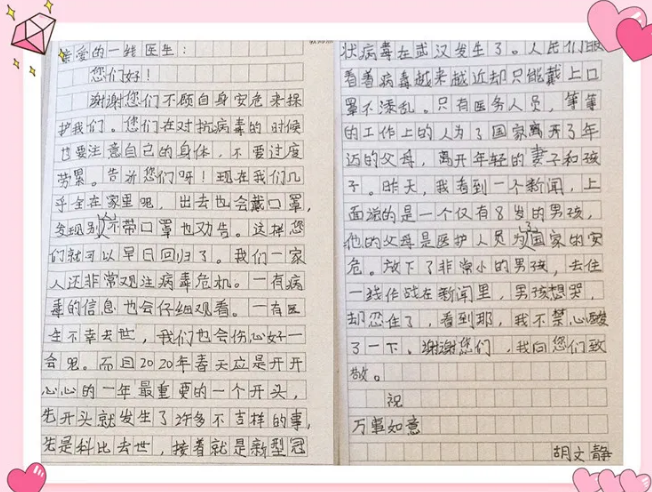 亲爱的一线医生：
您们好！
谢谢您们不顾自身安危来保
护我们。您们在对抗病毒的时候
也要注意自己的身体，不要过度
劳累。告诉您们呀！现在我们几
乎全在家里吧，出去也会戴口罩，
发现别人不带口罩也劝告。这样您
们就可以早日回归了。我们一家
人还非常观注病毒危机。一有病
毒的信息也会仔细观看。一有医
生不幸去世，我们也会伤心好一
会里。而且2020年春天应是开开
心心的一年最重要的一个开头，
先开头就发生了许多不吉祥的事，
先是科比去世，接着就是新型冠
状病毒在武汉发生了。人民们眼
看着病毒越来越近却只能戴上口
罩不添乱。只有医务人员，等等
的工作上的人为了国家离开了年
迈的父母，离开年轻的妻子和孩
子。昨天，我看到一个新闻，上
面说的是一个仅有8岁的男孩，
他的父母是医护人员为了国家的安
危。放下了非常小的男孩，去住
一线作战在新闻里，男孩想哭，
却忍住了，看到那，我不禁心酸
了一下。谢谢您们，我向您们致
敬。
祝
万事如意
胡文静